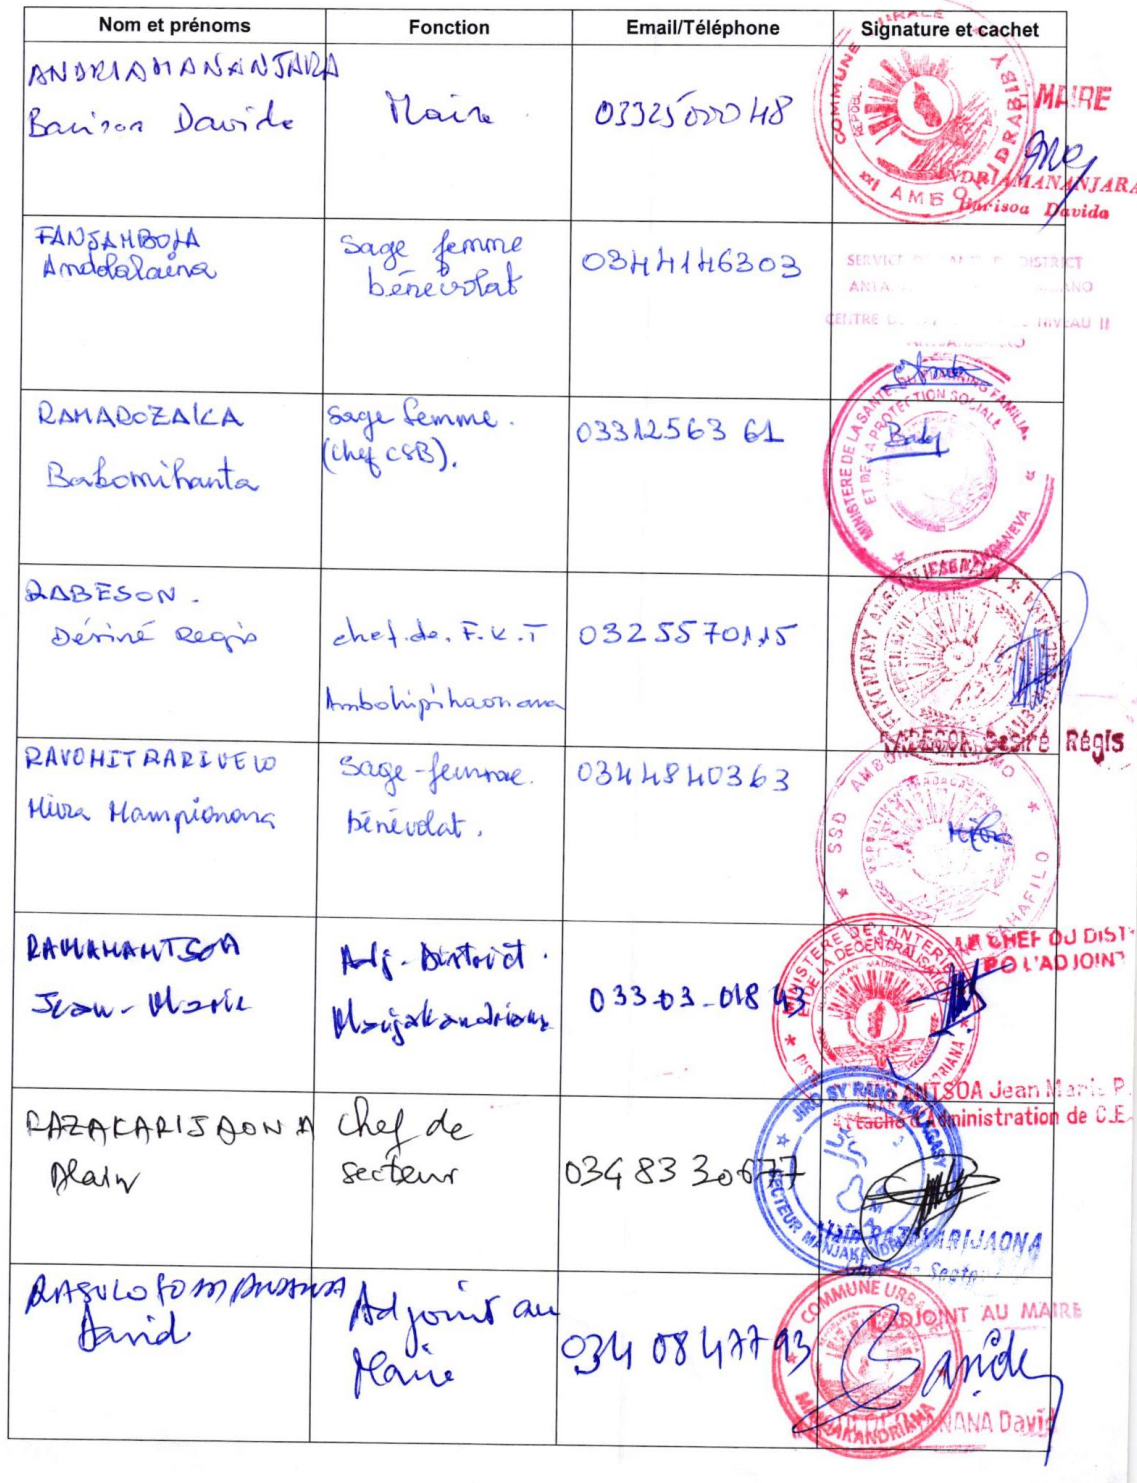 Nom et prénoms Fonction Email/Téléphone Signature et cachet
ANDRIAMANANJARA
Barisoa Davida
Maire
0332500048
COMMUNE RURALE
AMBOHIDRABIBY
MAIRE
ANDRIAMANANJARA
Barisoa Davida
FANJAMBOLA
Andolalaina
Sage femme
bénévolat
0344146303
SERVICE DISTRICT
CENTRE NIVEAU II
RAMAROZAKA
Bakomihanta
Sage femme.
(Chef CSB).
0331256361
MINISTERE DE LA SANTE DU PLANNING FAMILIAL
ET DE LA PROTECTION SOCIALE
RABESON.
Désiré Régis
chef.de. F.K.T
Ambohipihaonana
0325570115
RABESON Désiré Régis
RAVOHITRARIVELO
Miora Mampionona
Sage-femme.
bénévolat.
0344840363
SSD
RAMAMANTSOA
Jean-Marie
Adj-District.
Manjakandriana
033-03-018 43
MINISTERE DE L'INTERIEUR
ET DE LA DECENTRALISATION
LE CHEF DU DIST
PO L'ADJOINT
ANTSOA Jean Marie P.
Attaché d'Administration de C.E
RAZAKARIJAONA
Alain
Chef de
secteur
034 83 30677
JIRO SY RANO MALAGASY
SECTEUR MANJAKANDRIANA
Alain RAZAKARIJAONA
Chef de Secteur
David
Adjoint au
Maire
034 08 477 93
COMMUNE URBAINE
MANJAKANDRIANA
ADJOINT AU MAIRE
MANANA David